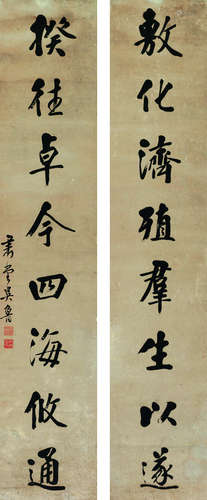 敷化濟殖羣生以遂
揆往卓今四海攸通
肅堂吳魯